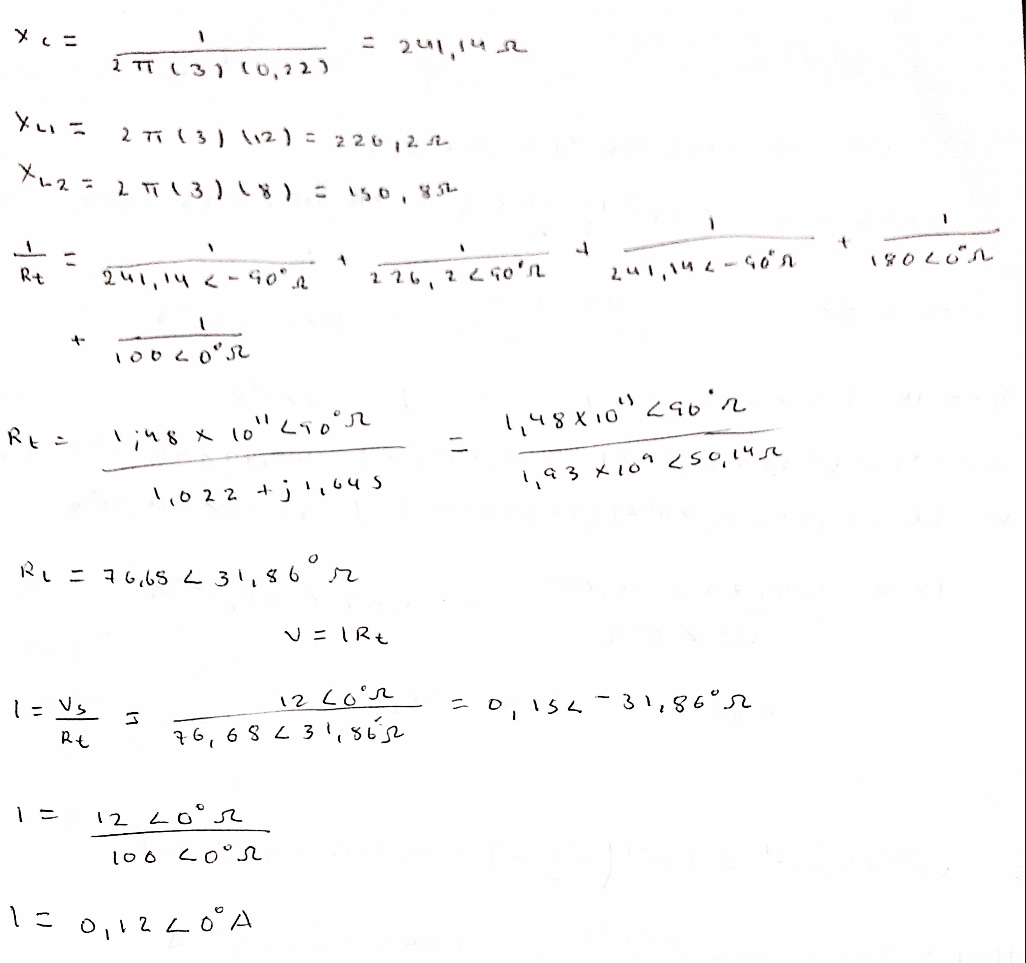 Xc = 1 / 2π(3)(0,22) = 241,14 Ω
XL1 = 2π(3)(12) = 226,2 Ω
XL2 = 2π(3)(8) = 150,8 Ω
1/Rt = 1 / 241,14 < -90° Ω + 1 / 226,2 < 90° Ω + 1 / 241,14 < -90° Ω + 1 / 180 < 0° Ω
+ 1 / 100 < 0° Ω
Rt = 1,48 x 10¹¹ < 90° Ω / 1,022 + j 1,645 = 1,48 x 10¹¹ < 90° Ω / 1,93 x 10⁹ < 50,14 Ω
Rt = 76,68 < 31,86° Ω
V = IRt
I = Vs / Rt = 12 < 0° Ω / 76,68 < 31,86° Ω = 0,15 < -31,86° Ω
I = 12 < 0° Ω / 100 < 0° Ω
I = 0,12 < 0° A